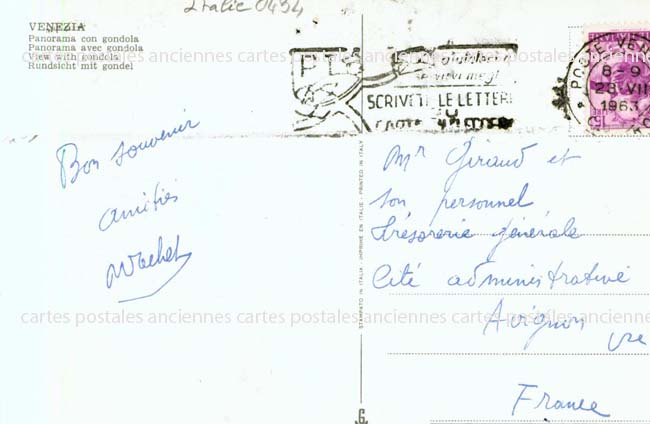 Italie 0434
VENEZIA
Panorama con gondola
Panorama avec gondola
View with gondola
Rundsicht mit gondel
SCRIVETE LE LETTERE
POSTE VENEZIA
8-9
23 VII
1963
Bon souvenir
amitiés
Mr Giraud et
son personnel
Trésorerie générale
Cité administrative
Avignon
France
STAMPATO IN ITALIA - IMPRIMÉ EN ITALIE - PRINTED IN ITALY
cartes postales anciennes cartes postales anciennes cartes postales anciennes
cartes postales anciennes cartes postales anciennes cartes postales anciennes
G